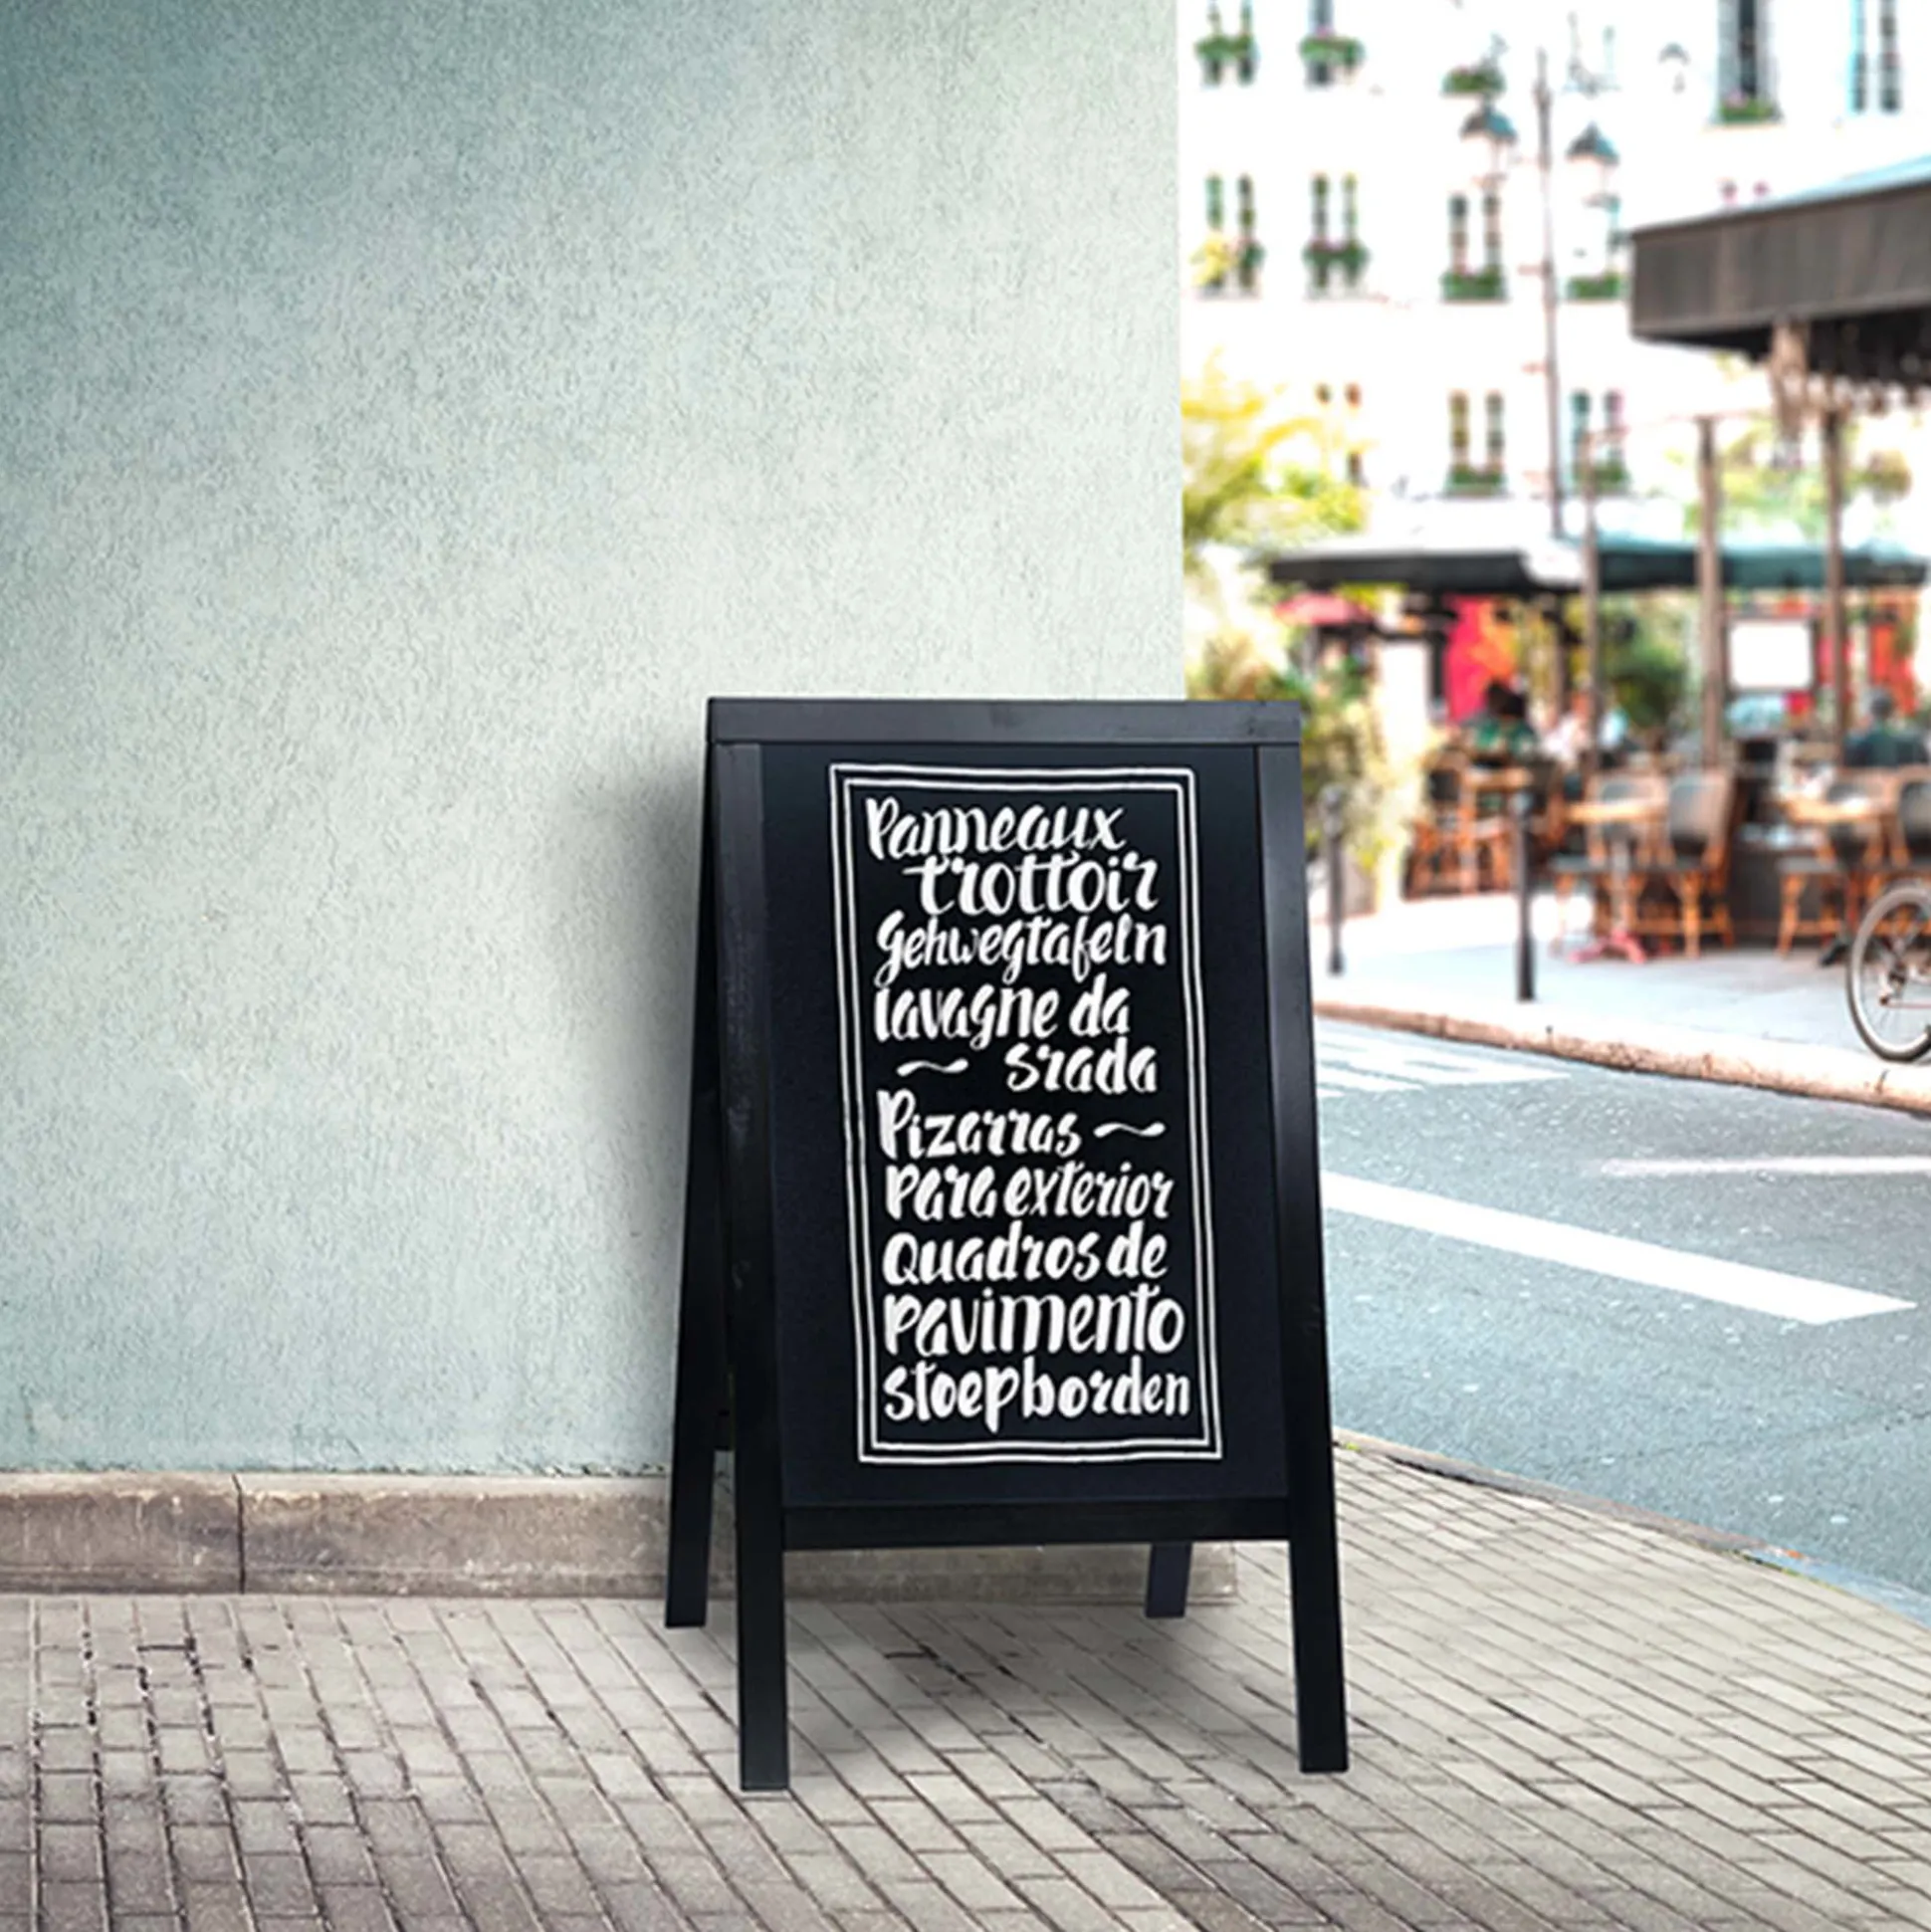 Panneaux
trottoir
Gehwegtafeln
lavagne da
~ srada
Pizarras ~
para exterior
Quadros de
pavimento
stoepborden